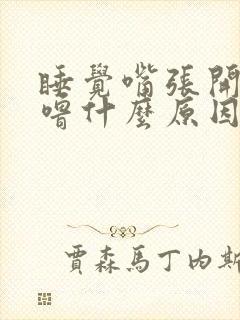 睡覺嘴張開
嚐什麼原因
賈森馬丁內斯